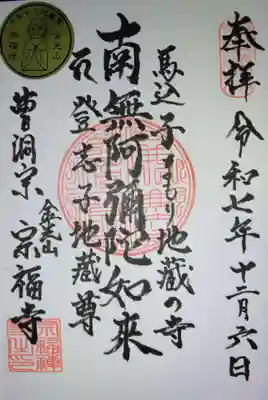 奉拝
令和七年十二月六日
馬込子まもり地蔵の寺
南無阿彌陀如来
登志子地蔵尊
曹洞宗
金光山
宗福寺